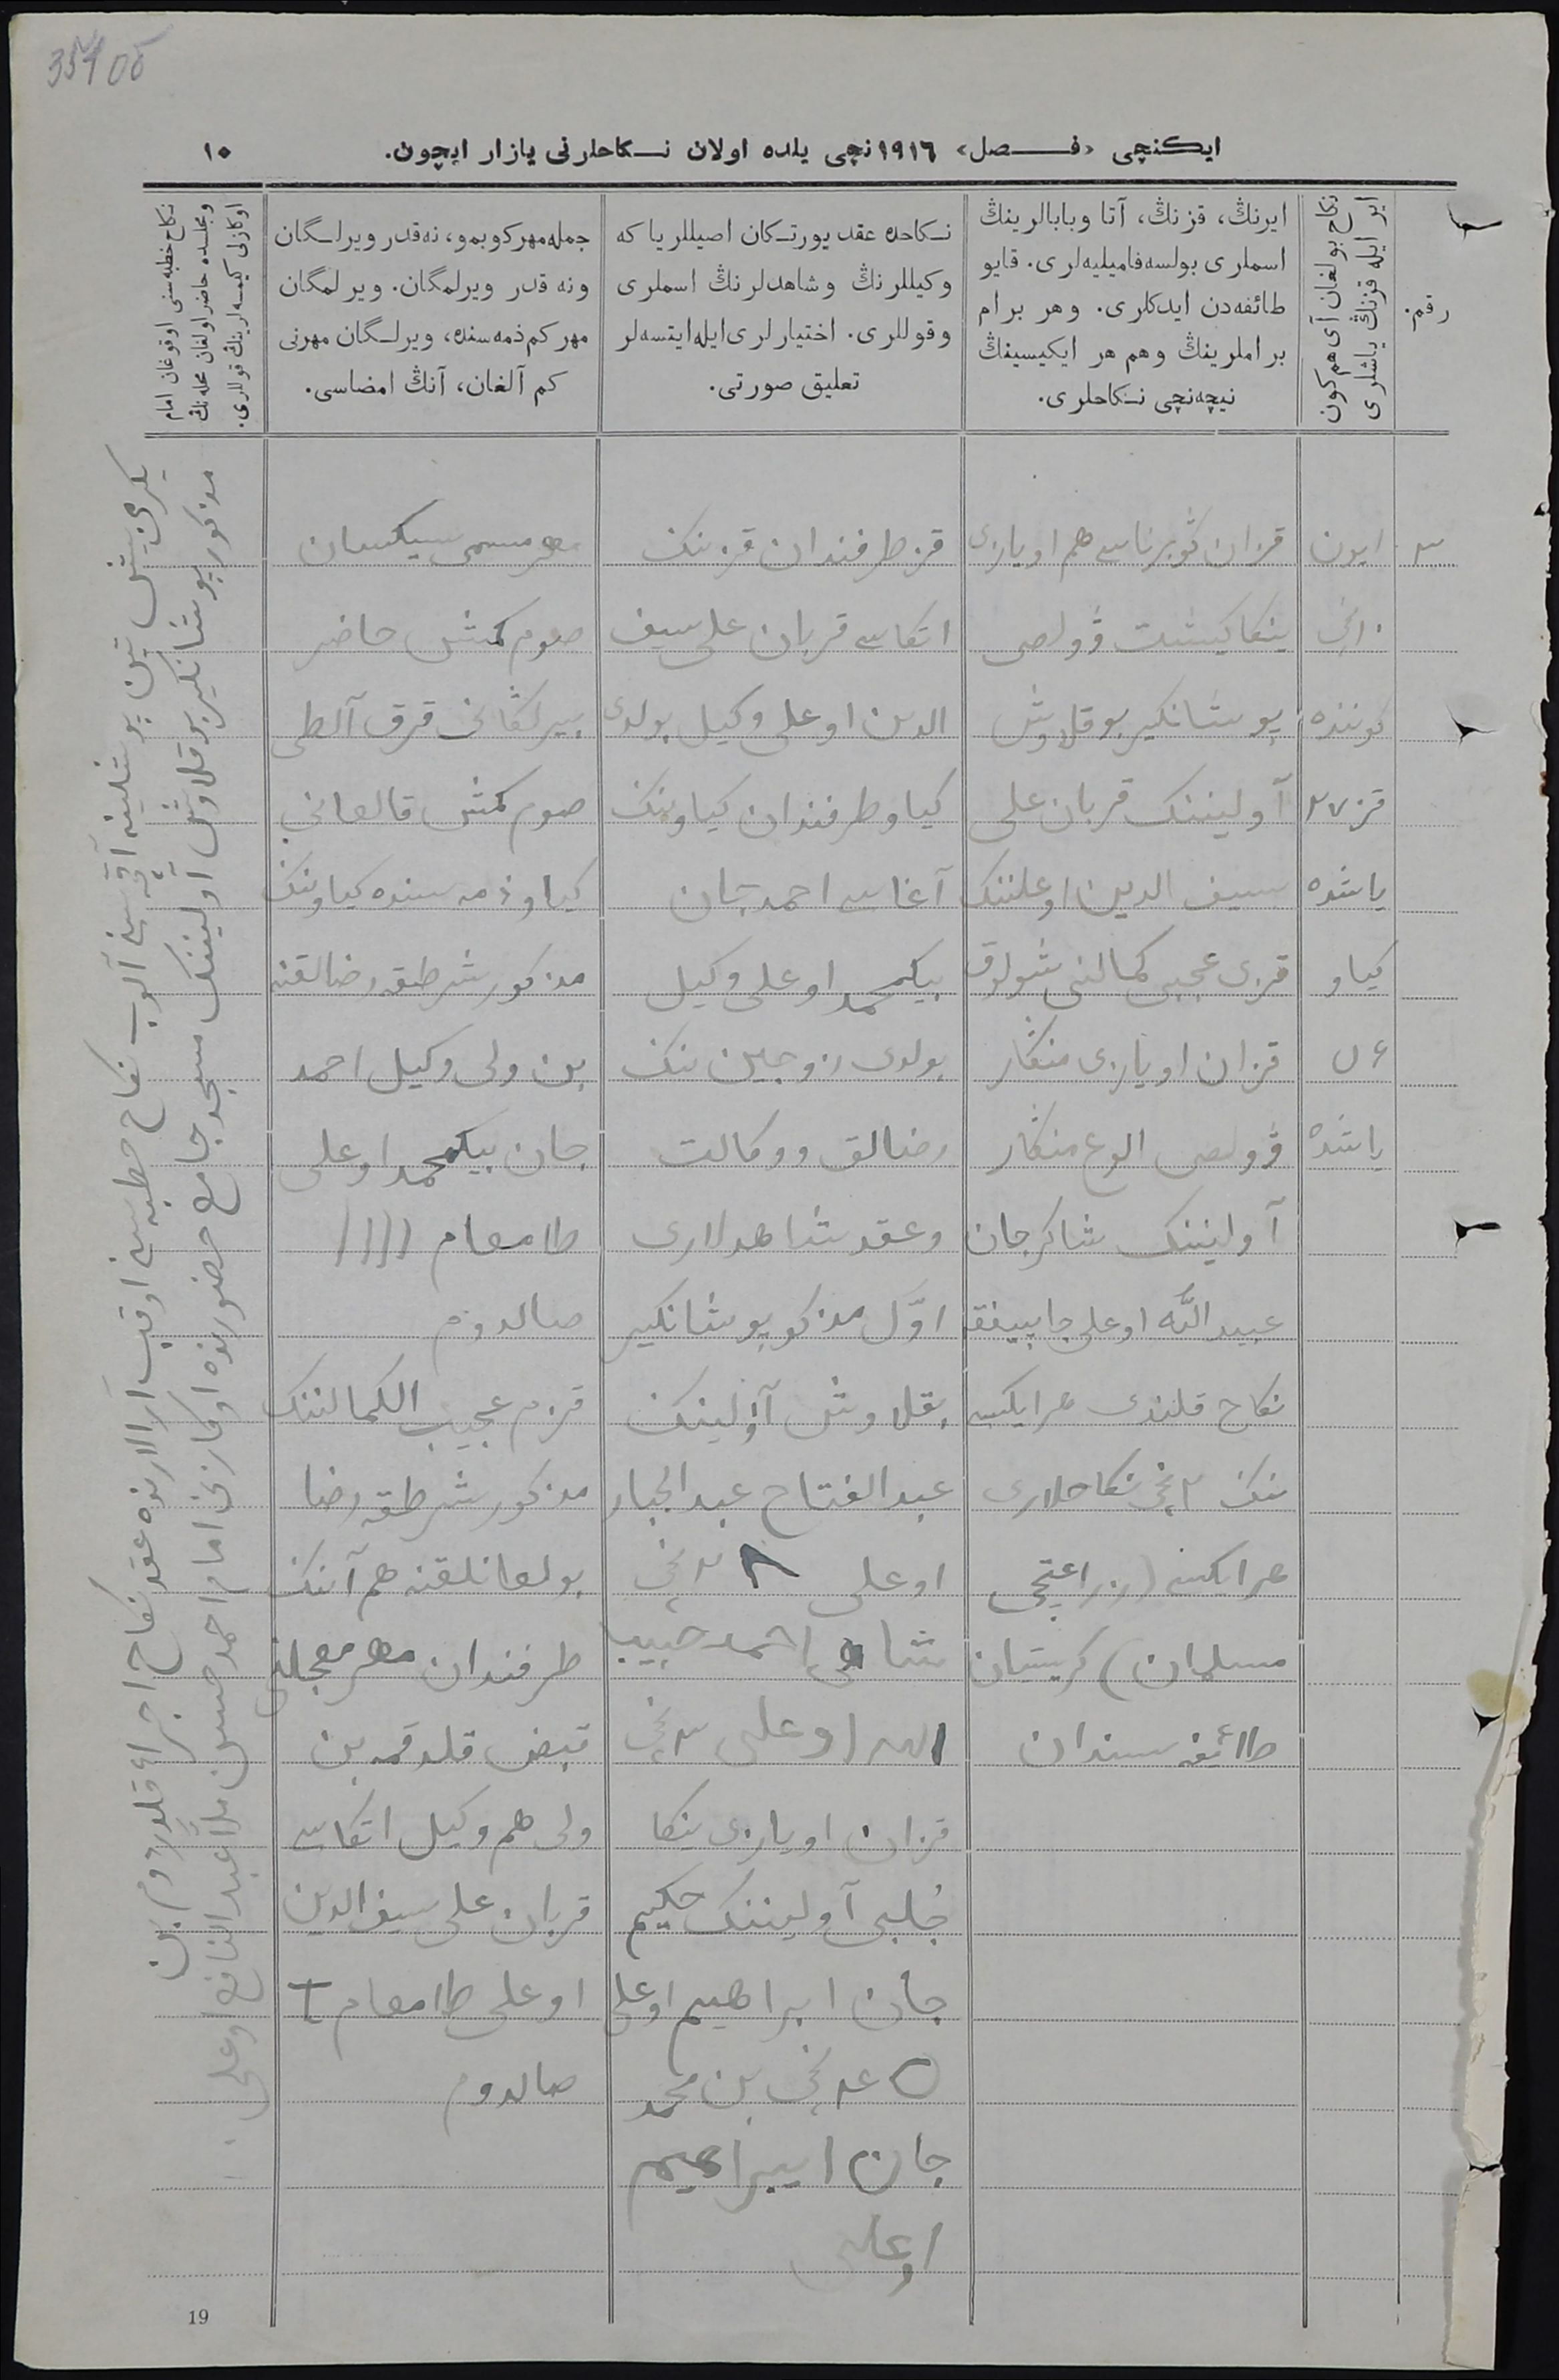 35405
ایکنچی «فصل» ١٩١٦نچی یلده اولان نکاحلرنی یازار ایچون.
١٠
رقم.
نکاح بولغان آی هم کون
ایر ایله قزنڭ یاشلری
ایرنڭ، قزنڭ، آتا وبابالرینڭ
اسملری بولسه فامیلیه‌لری. قایو
طائفه‌دن ایدکلری. وهر برام
براملرینڭ وهم هر ایکیسینڭ
نیچه‌نچی نکاحلری.
نکاحده عقد یورتکان اصیللر یا که
وکیللرنڭ وشاهدلرنڭ اسملری
وقوللری. اختیارلری ایله ایتسه‌لر
تعلیق صورتی.
جمله مهر کوبمو، نه‌قدر ویرلگان
ونه قدر ویرلمگان. ویرلمگان
مهر کم ذمه‌سنده، ویرلگان مهرنی
کم آلغان، آنڭ امضاسی.
نکاح خطبه‌سنی اوقوغان امام
ومجلسده حاضر اولغان محله‌نڭ
اوکازلی کیمسه‌لرینڭ قوللری.
٣
ایون
١٠نچی
کوننده
قز ٢٧
یاشده
کیاو
یاشده
قزان گوبرناسی هم اویازی
ینکا کیشیت ڤولصی
یوشانکیر بوقلاوش
آولیننک قربان علی
سیف الدین اوغلننک
قزی عجبی کمالنی شولوق
قزان اویازی منگار
ڤولصی الوغ منگار
آولیننک شاکرجان
عبید الله اوغلی حابیبفقه
نکاح قلندی هر ایکیسی
ننک ٢نچی نکاحلاری
هر ایکسی (زراعتچی
مسلمان) کریستیان
طائفه سندان
قز طرفندان قزننک
اتکاسی قربان علی سیف
الدین اوغلی وکیل بولدی
کیاو طرفندان کیاوننک
آغاسی احمدجان
بیکمحمد اوغلی وکیل
بولدی زوجین ننک
رضالق ووکالت
وعقد شاهدلاری
اوّل مذکور یوشانکیر
بقلاوش آولیننک
عبدالفتاح عبدالجبار
اوغلی ٨
شاه احمد حبیب
الله اوغلی ٣نچی
قزان اویازی ینکا
جُلبی آولیننک حکیم
جان ابراهیم اوغلی
٤نچی بن محمد
جان ایبراهیم
اوغلی
مهر مسمی سیکسان
صوم کمش حاضر
بیرلگانی قرق آلطی
صوم کمش قالغانی
کیاو ذمه سنده کیاوننک
مذکور شرطقه رضالقنه
بن ولی وکیل احمد
جان بیکمحمد اوغلی
طامغام ////
صالدوم
قزم عجیب الکمالننک
مذکور شرطقه رضا
بولغانلقنه هم آننک
طرفندان مهر معجلنی
قبض قلدقمه بن
ولی هم وکیل اتکاسی
قربان علی سیف الدین
اوغلی طامغام
صالدوم
یکرمی بیش تین پوشلینه آقچه سنی آلوب نکاح خطبه سنی اوقب آرالارنده عقد نکاح اجراء قلدردم بن
مذکور یوشانکیر بوقلاوش آولیننک مسجد جامع حضورنده اوکازنی امام احمد حسن ملا عبد النافع اوغلی
19